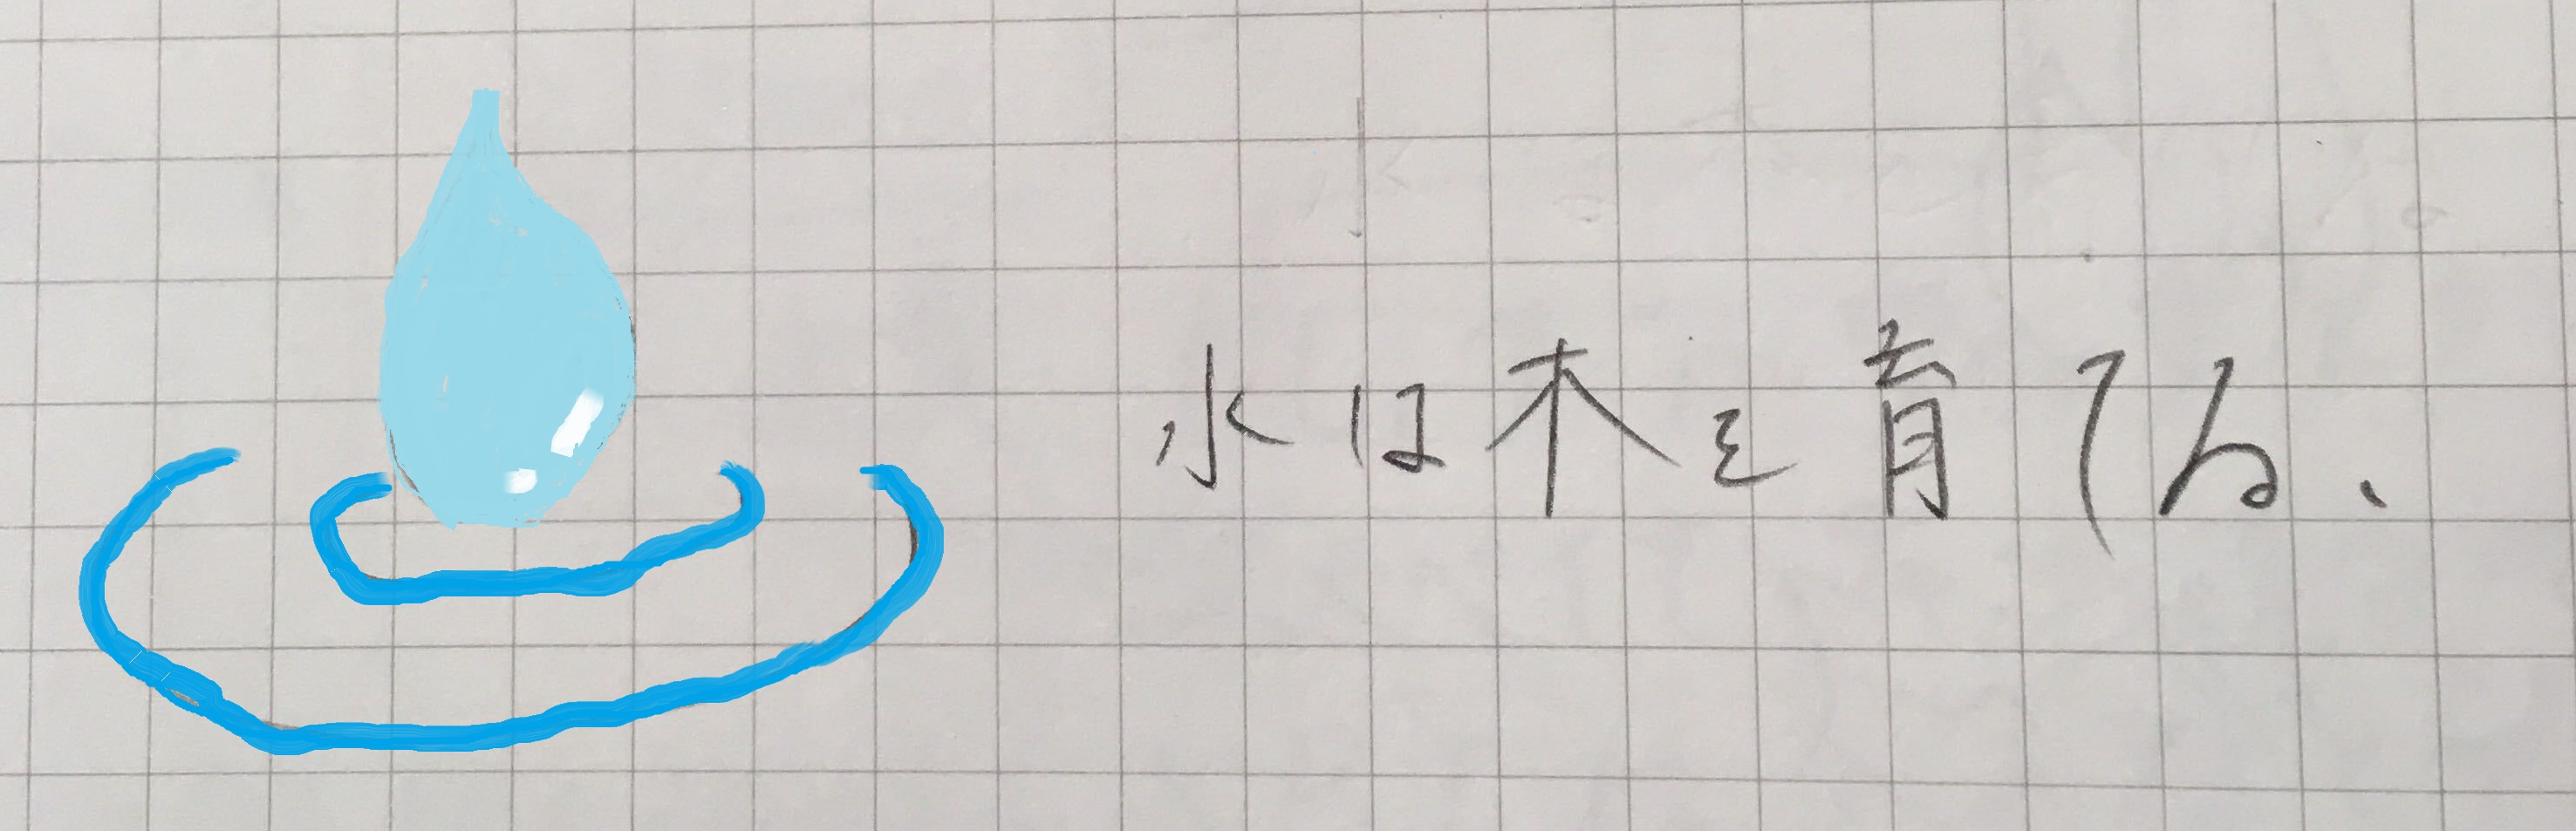 水は木を育てる、